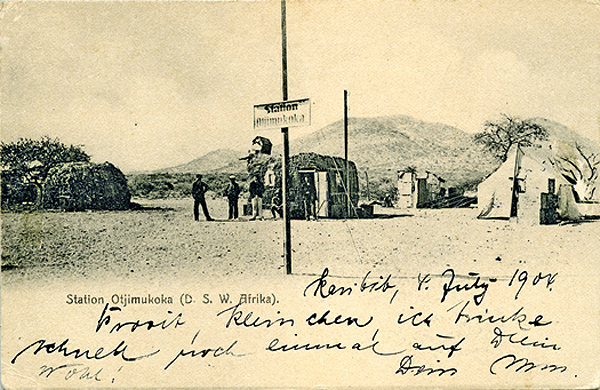 Station
Otjimukoka.
Station Otjimukoka (D. S. W. Afrika).
Karibib, 4. July 1904.
Prosit, Kleinchen, ich trinke
schnell noch einmal auf Dein
Wohl! Dein